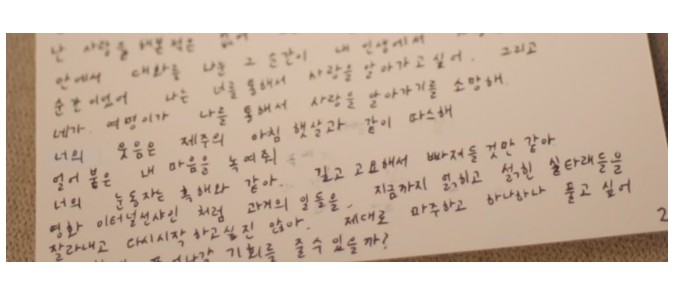 난 사랑을 해본 적은 없어
안에서 대화를 나눈 그 순간이 내 인생에서
순간이었어 나는 너를 통해서 사랑을 알아가고 싶어. 그리고
네가 여명이가 나를 통해서 사랑을 알아가기를 소망해.
너의 웃음은 제주의 아침 햇살과 같이 따스해
얼어붙은 내 마음을 녹여줘
너의 눈동자는 흑해와 같아. 깊고 고요해서 빠져들 것만 같아
영화 이터널선샤인 처럼 과거의 일들을, 지금까지 얽히고 설킨 실타래들을
잘라내고 다시시작 하고싶진 않아. 제대로 마주하고 하나하나 풀고 싶어
기회를 줄 수 있을까?
2